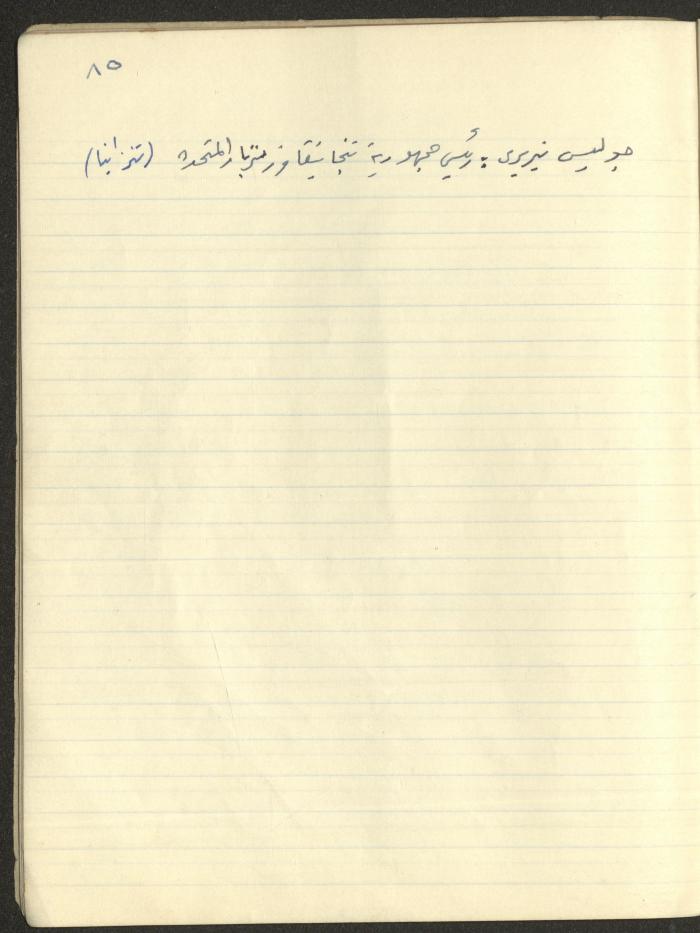 ٨٥
جوليس نيريرى : رئيس جمهورية تنجانيقا وزنزبار المتحدة (تنزانيا)